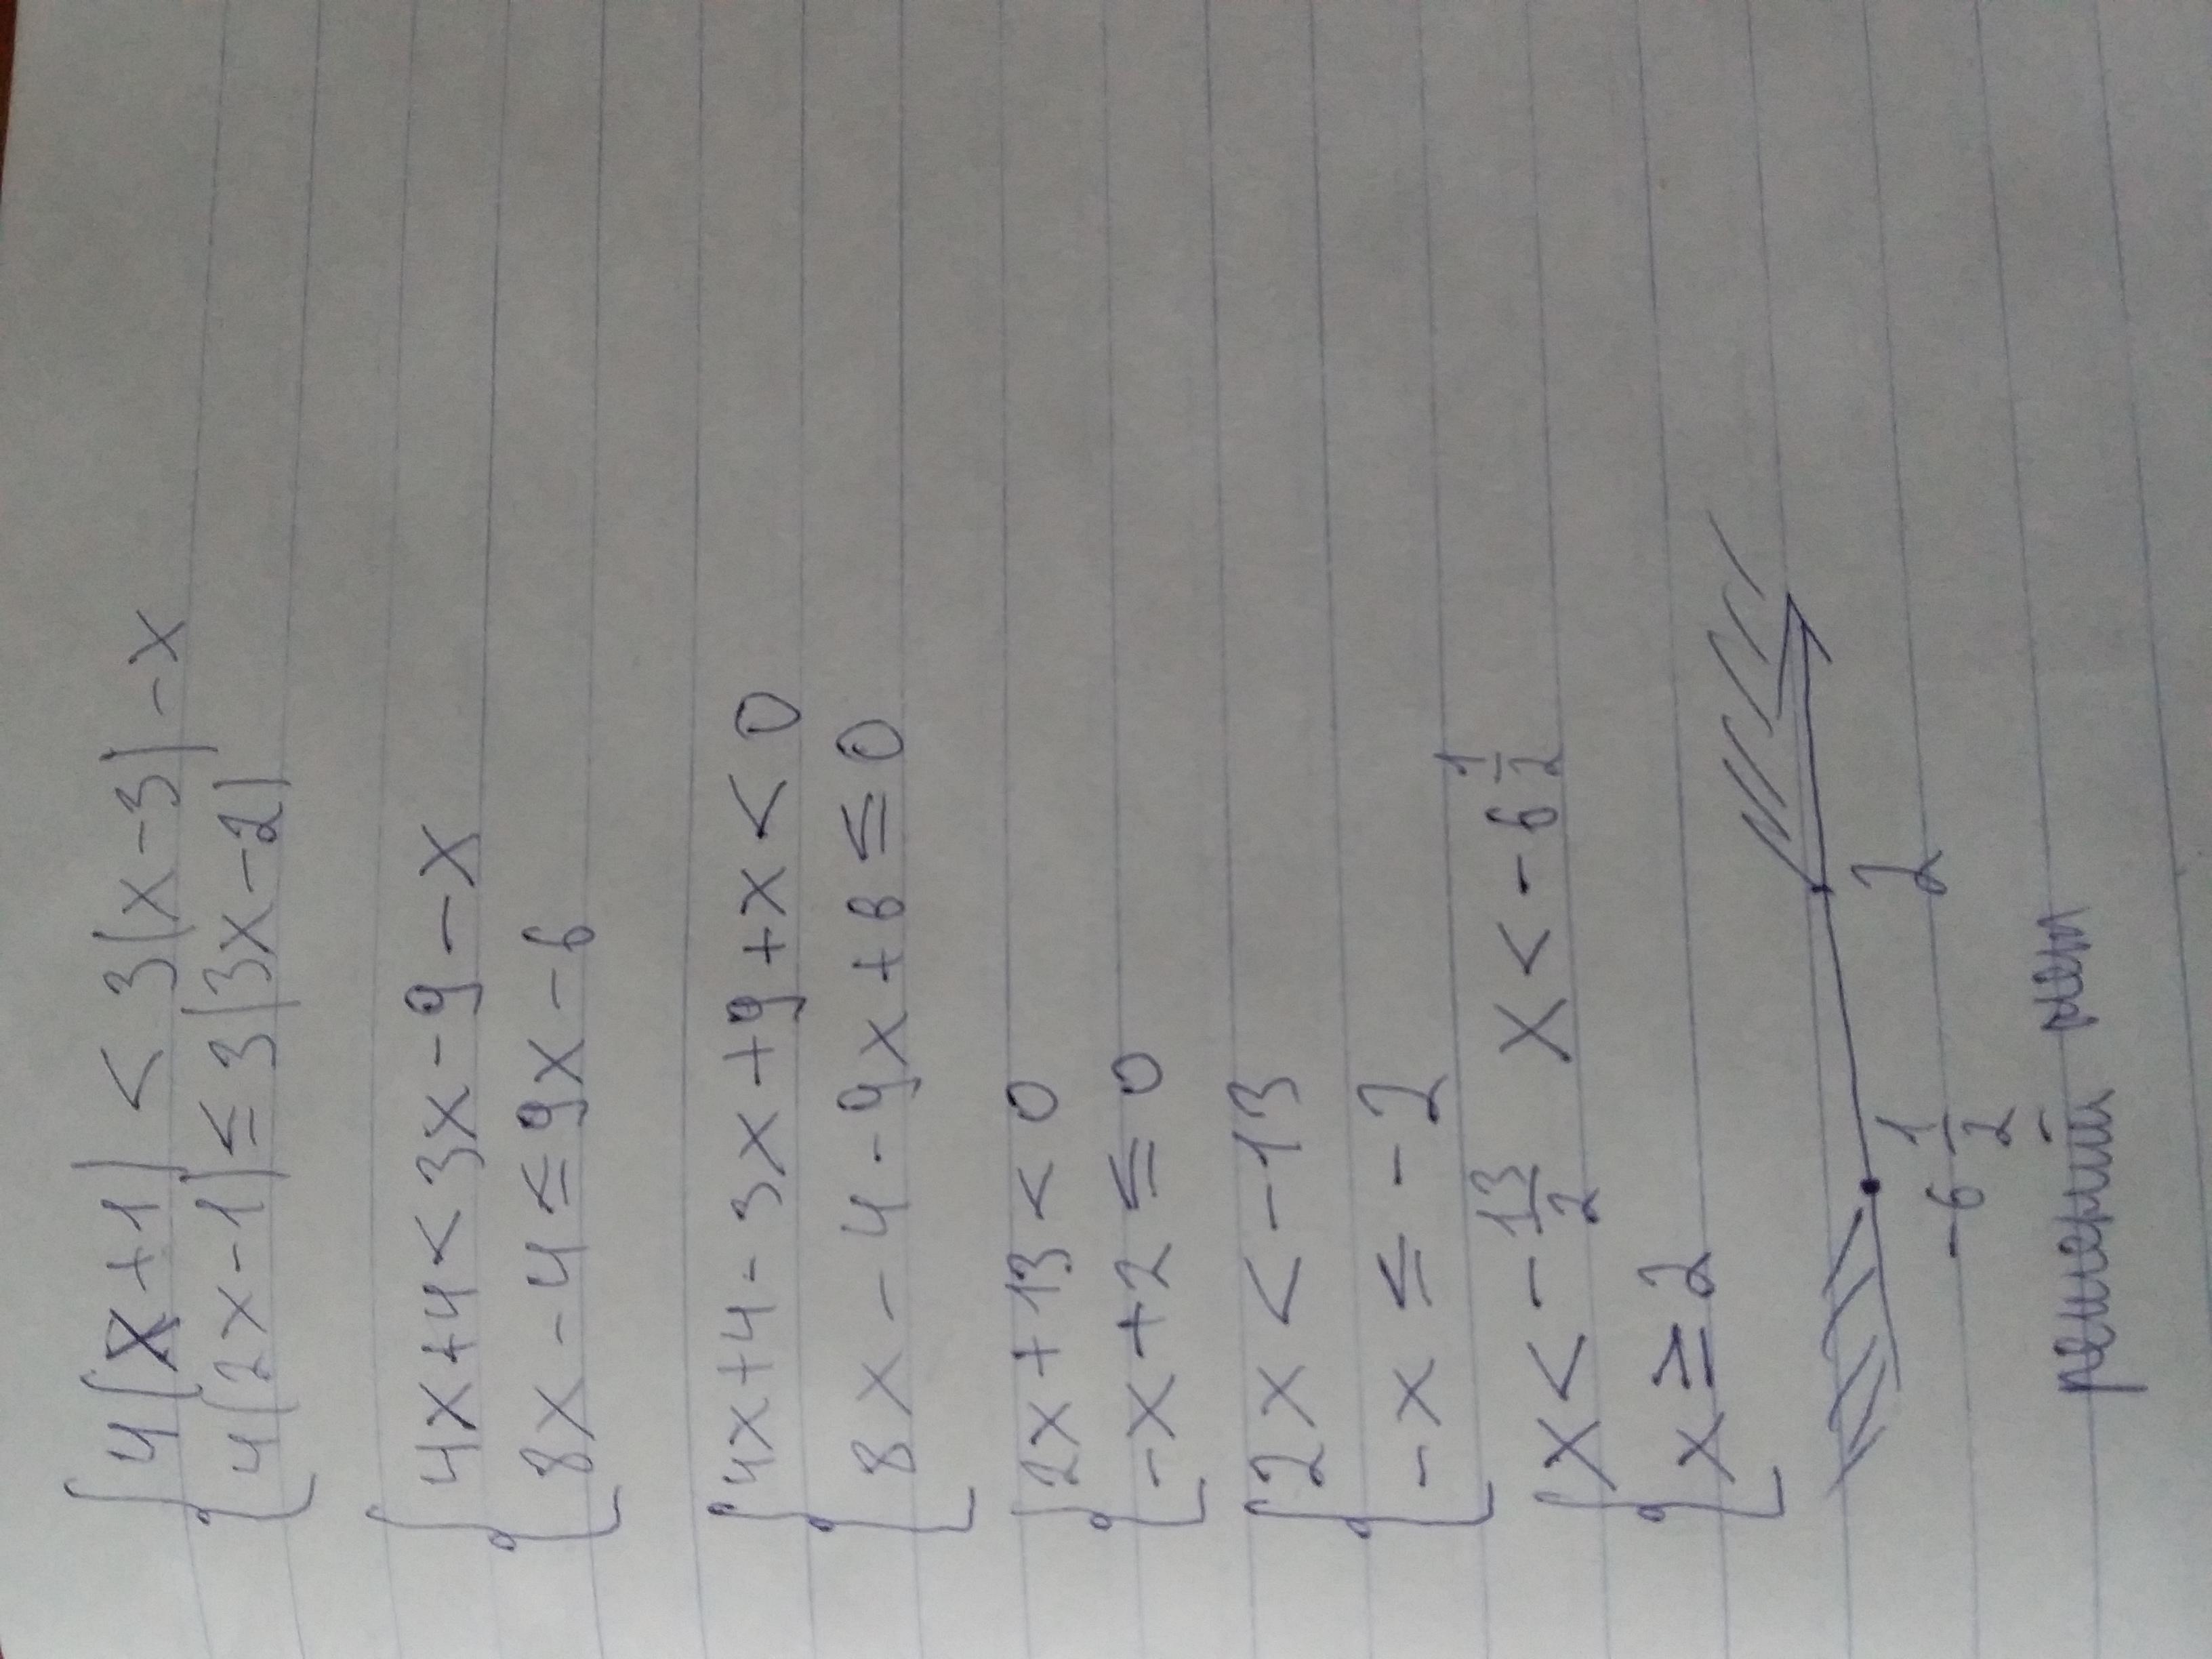 4(x+1) < 3(x-3)-x
4(2x-1) ≤ 3(3x-2)
4x+4 < 3x-9-x
8x-4 ≤ 9x-6
4x+4-3x+9+x < 0
8x-4-9x+6 ≤ 0
2x+13 < 0
-x+2 ≤ 0
2x < -13
-x ≤ -2
x < -13/2 x < -6 1/2
x ≥ 2
-6 1/2 2
решений нет